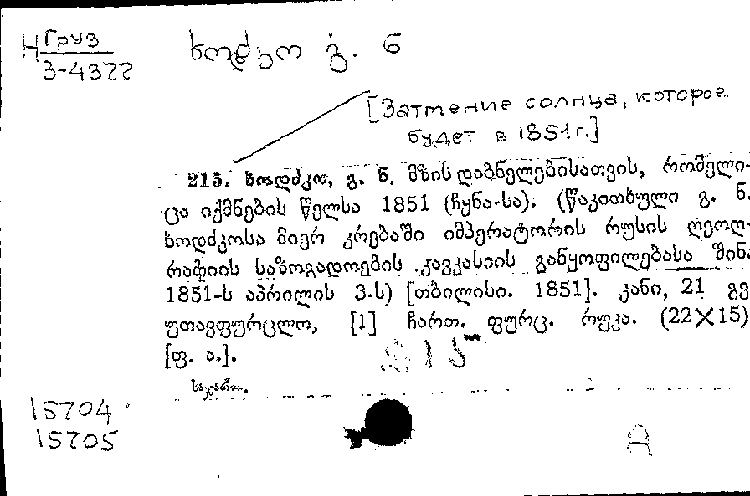 Н Груз
3-4322
ხოძკო გ. ნ
[Затмение солнца, которое
будет в 1851 г.]
215. ხოდძკო, გ. ნ. მზის დაბნელებისათვის, რომელი-
ცა იქმნების წელსა 1851 (ჩყნა-სა). (წაკითხული გ. ნ.
ხოდძკოსა მიერ კრებაში იმპერატორის რუსის ღეოღ-
რაფიის საზოგადოების კავკასიის განყოფილებასა შინა
1851-ს აპრილის 3-ს) [თბილისი. 1851]. კანი, 21 გვ
უთავფურცლო, [1] ჩართ. ფურც. რუკა. (22×15)
[ფ. ა.].
15704
15705